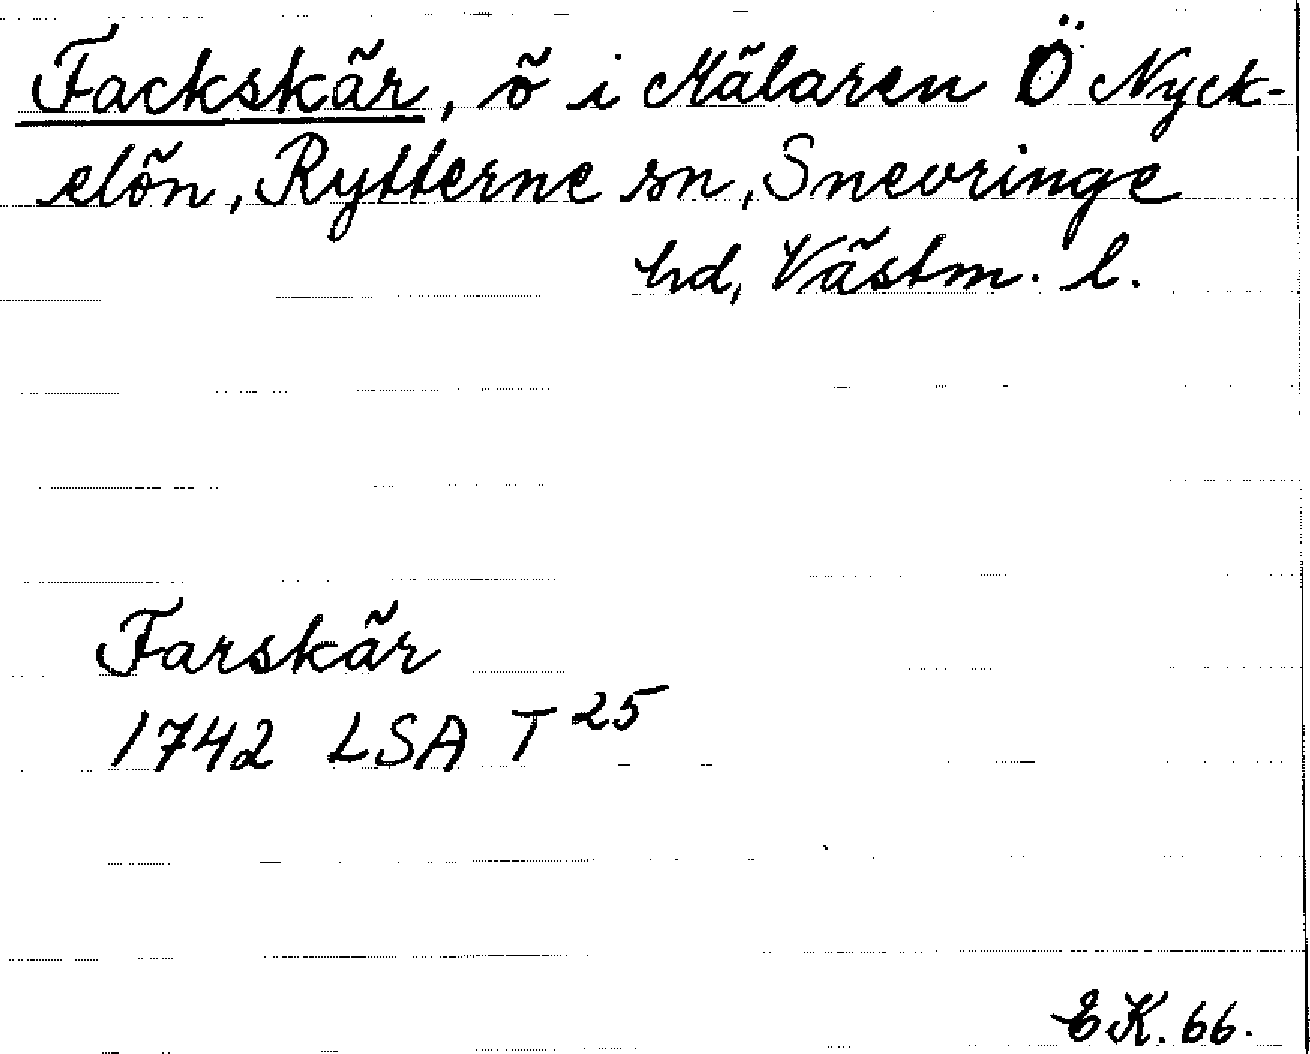 Fackskär, ö i Mälaren Ö Nyck-
elön, Rytterne sn, Snevringe
hd, Västm. l.
Farskär
1742 LSA T 25
EK. 66.